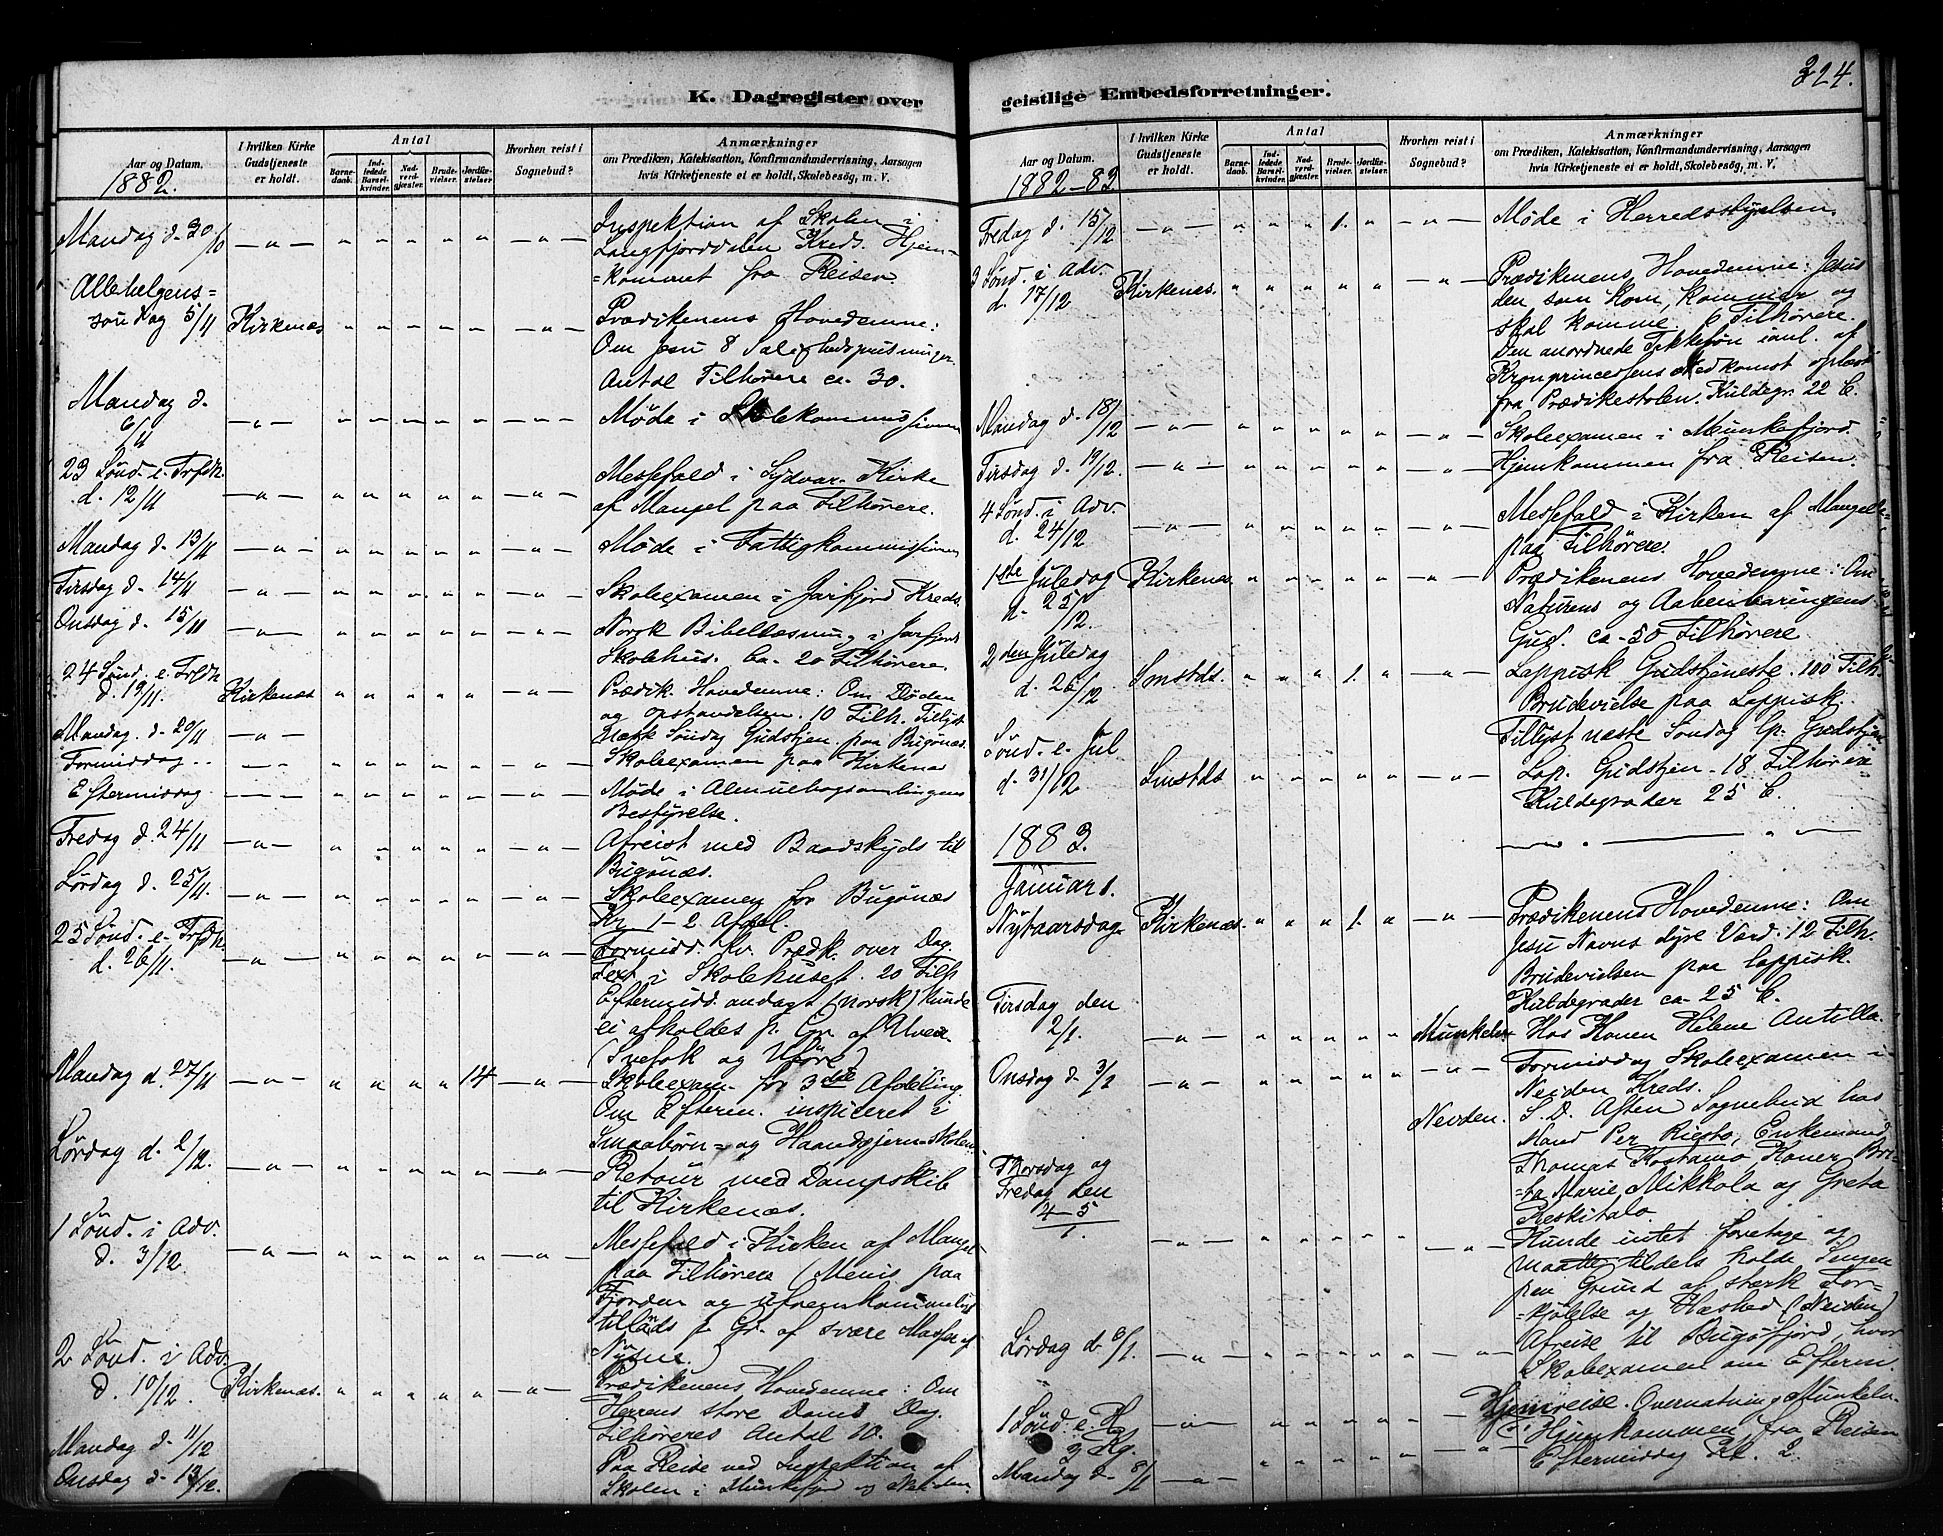 324.
K. Dagregister over
Aar og Datum.
1882.
I hvilken Kirke
Gudstjeneste
er holdt.
Antal
Barne-
daab.
Ind-
ledede
Barsel-
kvinder.
Nad-
verd-
gjæster.
Brude-
vielser.
Jordfæ-
stelser.
Hvorhen reist i
Sognebud?
Anmærkninger
om Prædiken, Katekisation, Konfirmandundervisning, Aarsagen
hvis Kirketjeneste ei er holdt, Skolebesøg, m. V.
Mandag d. 30/10 Inspektion af Skolen i
Langfjorddalen Kreds. Hjem-
=kommet fra Reisen.
Allehelgens=
søndag 5/11 Kirkenæs Prædikenens Hovedemne:
Om Jesu 8 Salighedsprisninger.
Antal Tilhørere ca. 30.
Mandag d.
6/11 Møde i Skolekommissionen
23 Sønd. e. Trfdh.
d. 12/11 Messefald i Sydvar. Kirke
af Mangel paa Tilhørere.
Mandag d. 13/11 Møde i Fattigkommissionen
Tirsdag d. 14/11 Skoleexamen i Jarfjord Kreds.
Onsdag d. 15/11 Norsk Bibellæsning i Jarfjord
Skolehus. Ca. 20 Tilhørere.
24 Sønd. e. Trfdh
d. 19/11. Kirkenæs Prædik. Hovedemne: Om Døden
og opstandelsen. 10 Tilh. Tillyst
næste Søndag Gudstjen. paa Bugønæs.
Mandag. d. 20/11
Formiddag Skoleexamen paa Kirkenæs
Eftermiddag Møde i Almuebogsamlingens
Bestyrelse.
Fredag d. 24/11 Afreist med Baadskyds til
Bugønæs.
Lørdag d. 25/11. Skoleexamen for Bugønæs
Kr. 1-2. Afdel.
25 Sønd. e. Trfdh.
d. 26/11. Formidd. Kv. Prædk. over Dag.
Text i Skolehuset. 20 Tilh
Eftermidd. andagt (norsk) Kunde
ei afholdes p. Gr. af Uveir
(Snefok og Uføre)
Mandag d. 27/11 14 Skoleexam. for 3die Afdeling.
Om Efterm. inspiceret i
Smaabørn= og Haandgjern. Skolen
Lørdag d. 2/12. Retour med Dampskib
til Kirkenæs.
1 Sønd. i Adv.
d. 3/12 Messefald i Kirken af Mangel
paa Tilhørere (Menis paa
Fjorden og ufremkommeligt
tillands p. Gr. af svære Masser af
Nysne.)
2 Sønd. i Adv.
d. 10/12 Kirkenæs. Prædikenens Hovedemne: Om
Herrens store Doms Dag.
Tilhøreres Antal 10.
Mandag d. 11/12
Onsdag d. 13/12. Paa Reise ved Inspektion af
Skolen i Munkefjord og Neiden.
geistlige Embedsforretninger.
Aar og Datum.
1882-83
I hvilken Kirke
Gudstjeneste
er holdt.
Antal
Barne-
daab.
Ind-
ledede
Barsel-
kvinder.
Nad-
verd-
gjæster.
Brude-
vielser.
Jordfæ-
stelser.
Hvorhen reist i
Sognebud?
Anmærkninger
om Prædiken, Katekisation, Konfirmandundervisning, Aarsagen
hvis Kirketjeneste ei er holdt, Skolebesøg, m. V.
Fredag d. 15/12 1. Møde i Herredsstyrelsen.
3 Sønd. i Adv.
d. 17/12 Kirkenæs. Prædikenens Hovedemne: Jesus
den som kom, kommer og
skal komme. 6 Tilhørere.
Den anordnede Takkebøn ianl. af
Kronprincessens Nedkomst oplæst
fra Prædikestolen. Kuldegr. 22 C.
Mandag d. 18/12 Skoleexamen i Munkefjord.
Tirsdag d. 19/12. Hjemkommen fra Reisen.
4 Sønd. i Adv.
d. 24/12 Messefald i Kirken af Mangel
paa Tilhørere.
1ste Juledag
d. 25/12. Kirkenæs Prædikenens Hovedemne: Om
Naturens og Aabenbaringens
Gud. ca. 50 Tilhørere
2den Juledag
d. 26/12 Smstds. 1. Lappisk Gudstjeneste. 100 Tilh.
Brudevielse paa Lappisk.
Tillyst næste Søndag lp. Gudstjen
Sønd. e. Jul
d. 31/12. Smstds Lap. Gudstjen. 18 Tilhørere
Kuldegrader 25 C.
1883.
Januar 1.
Nytaarsdag Kirkenæs. 1. Prædikenens Hovedemne: Om
Jesu Navns dyre Værd. 12 Tilh.
Brudevielsen paa lappisk.
Kuldegrader ca. 25 C.
Tirsdag den
2/1. Munkelv Hos Konen Helene Antilla
Onsdag d. 3/1 Formiddag Skoleexamen i
Neiden Kreds.
Neiden. S. D. Aften Sognebud hos
Mand Per Riesto, Enkemand
Thomas Kostamo, Koner Bri-
=ta Marie Mikkola og Greta
Reskitalo.
Thorsdag og
Fredag den
4-5
1. Kunde intet foretage og
maatte tildels holde Sengen
paa Grund af stærk For-
=kjølelse og Hæshed (Neiden)
Lørdag d. 6/1. Afreise til Bugøfjord, hvor
Skoleexamen om Efterm.
1 Sønd. e. H
3 Kg. Hjemreise. Overnatning i Munkelv.
Mandag d. 8/1 Hjemkommen fra Reisen
Eftermiddag Kl. 2.